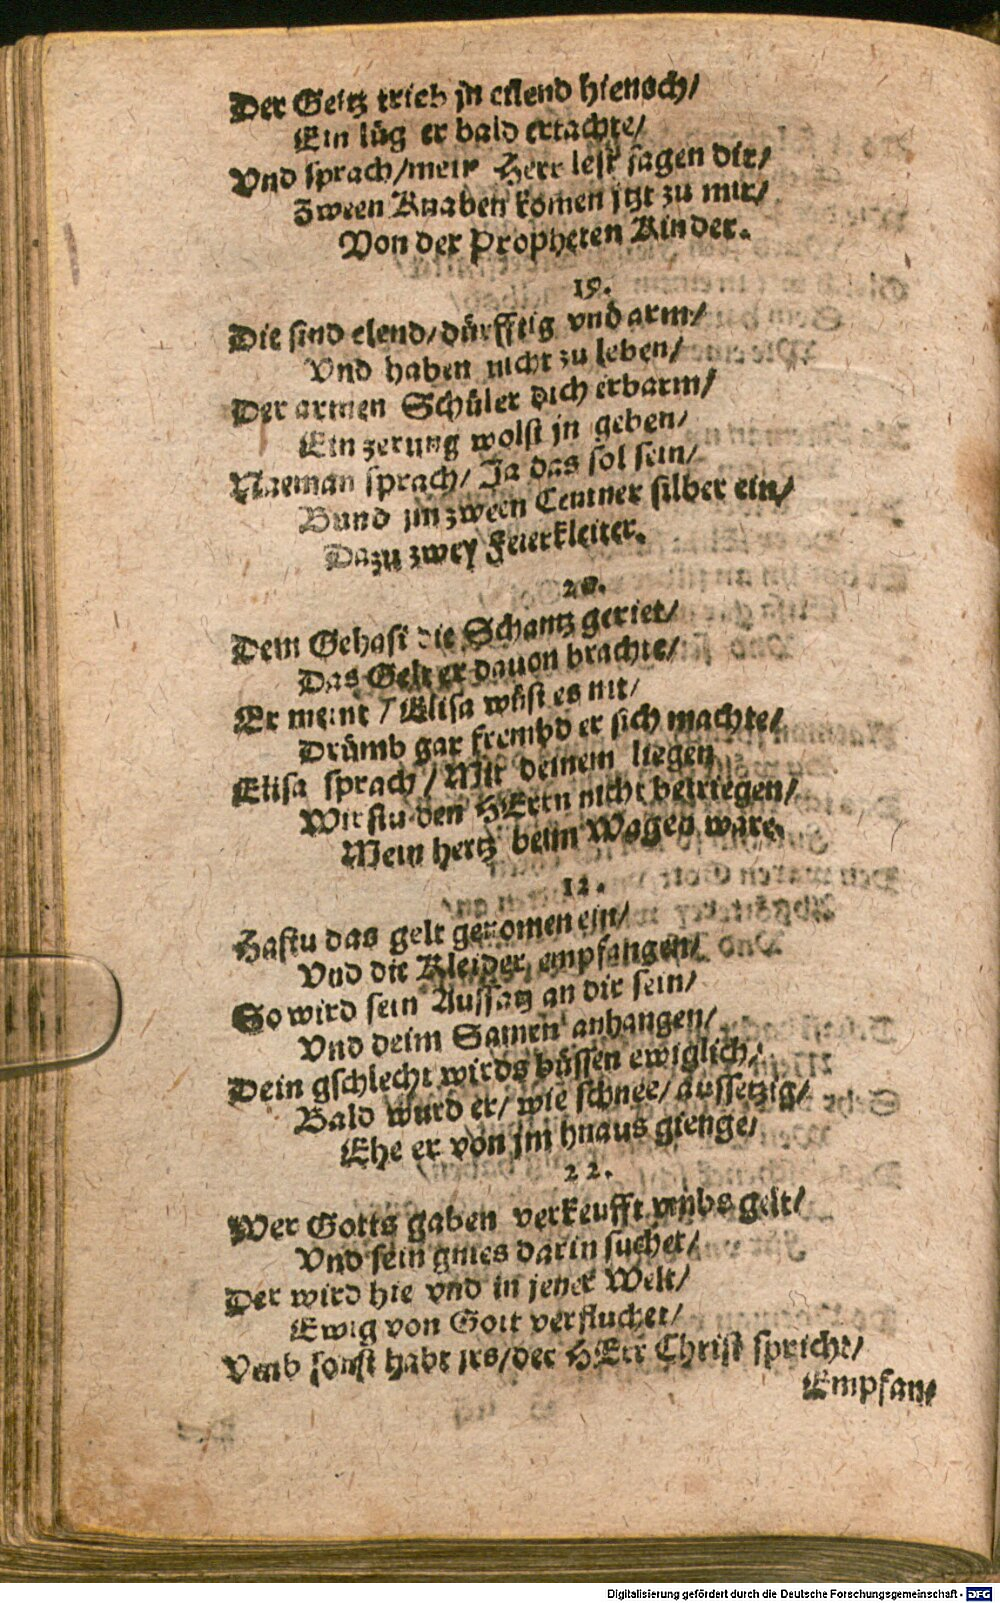 Der Geitz trieb jn eilend hienoch/
Ein lüg er bald ertachte/
Vnd sprach/mein Herr lest sagen dir/
Zween Knaben komen jtzt zu mir/
Von der Propheten Kinder.
19.
Die sind elend/dürfftig vnd arm/
Vnd haben nicht zu leben/
Der armen Schüler dich erbarm/
Ein zerung wolst jn geben/
Naeman sprach/ Ja das sol sein/
Bund jm zween Centner silber ein/
Dazu zwey Feierkleiter.
20.
Dem Gehasi die Schantz geriet/
Das Gelt er dauon brachte/
Er meint / Elisa wüst es nit/
Drümb gar frembd er sich machte/
Elisa sprach / Mit deinem liegen
Wirstu den HErrn nicht betriegen/
Mein hertz beim Wagen ware.
12.
Hastu das gelt genomen ein/
Vnd die Kleider empfangen/
So wird sein Aussatz an dir sein/
Vnd deim Samen anhangen/
Dein gschlecht wirds büssen ewiglich/
Bald wurd er/ wie schnee/ aussetzig/
Ehe er von jm hnaus gienge/
22.
Wer Gotts gaben verkeufft vmbs gelt/
Vnd sein gnies darin suchet/
Der wird hie vnd in jener Welt/
Ewig von Gott verfluchet/
Vmb sonst habt jrs/der HErr Christ spricht/
Empfan/
Digitalisierung gefördert durch die Deutsche Forschungsgemeinschaft - DFG